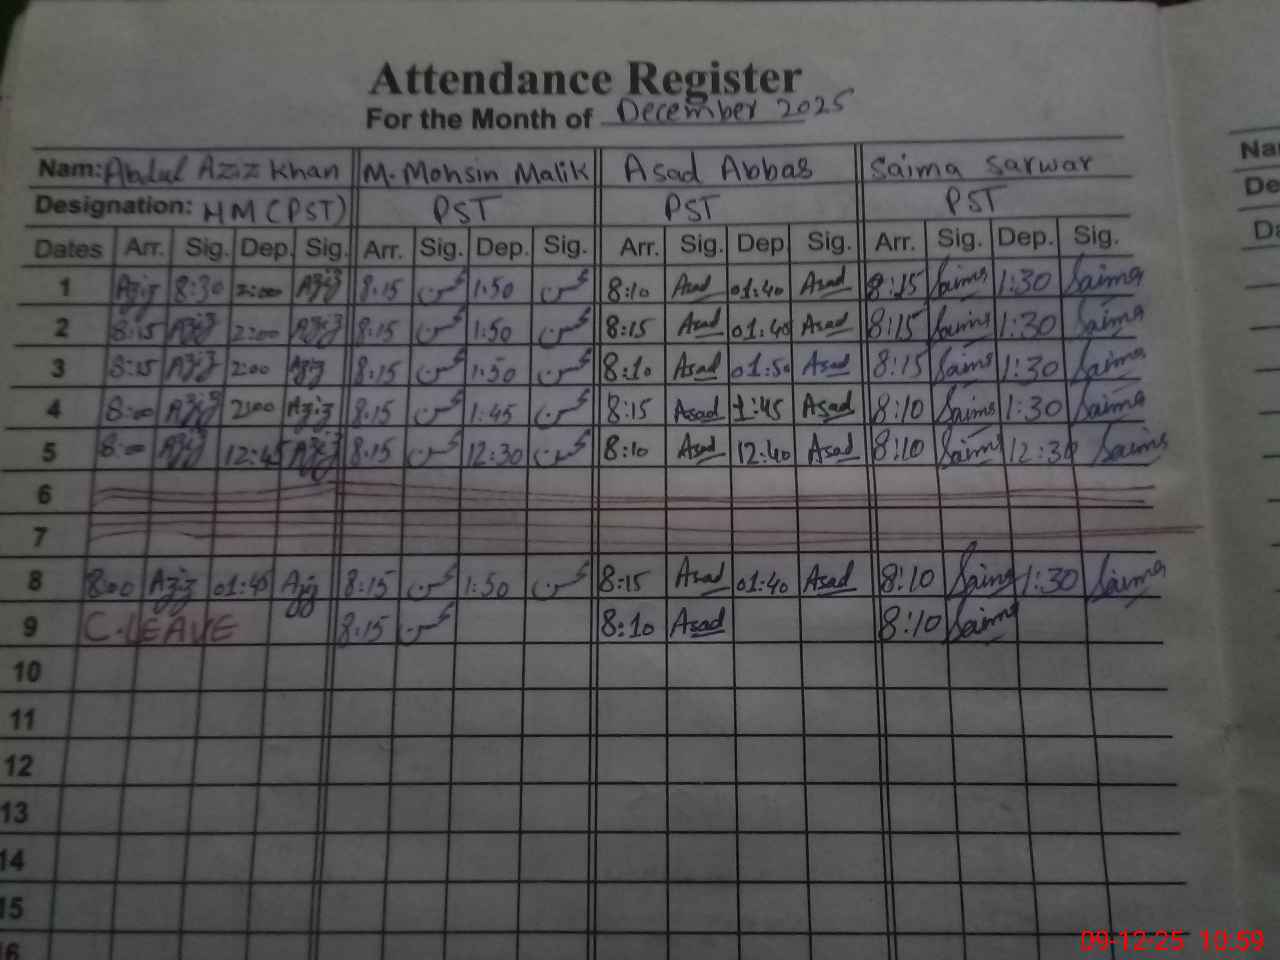 Attendance Register
For the Month of December 2025
Nam: Abdul Aziz Khan M. Mohsin Malik Asad Abbas Saima Sarwar Na
Designation: HM (PST) PST PST PST De
Dates Arr. Sig. Dep. Sig. Arr. Sig. Dep. Sig. Arr. Sig. Dep. Sig. Arr. Sig. Dep. Sig. Da
1 Aziz 8:30 2:00 Aziz 8:15 محسن 1:50 محسن 8:10 Asad 01:40 Asad 8:15 Saima 1:30 Saima
2 8:15 Aziz 2:00 Aziz 8:15 محسن 1:50 محسن 8:15 Asad 01:40 Asad 8:15 Saima 1:30 Saima
3 8:15 Aziz 2:00 Aziz 8:15 محسن 1:50 محسن 8:10 Asad 01:50 Asad 8:15 Saima 1:30 Saima
4 8:00 Aziz 2:00 Aziz 8:15 محسن 1:45 محسن 8:15 Asad 1:45 Asad 8:10 Saima 1:30 Saima
5 8:00 Aziz 12:45 Aziz 8:15 محسن 12:30 محسن 8:10 Asad 12:40 Asad 8:10 Saima 12:30 Saima
6
7
8 8:00 Aziz 01:45 Aziz 8:15 محسن 1:50 محسن 8:15 Asad 01:40 Asad 8:10 Saima 1:30 Saima
9 C.LEAVE 8:15 محسن 8:10 Asad 8:10 Saima
10
11
12
13
14
15
16
09-12-25 10:59